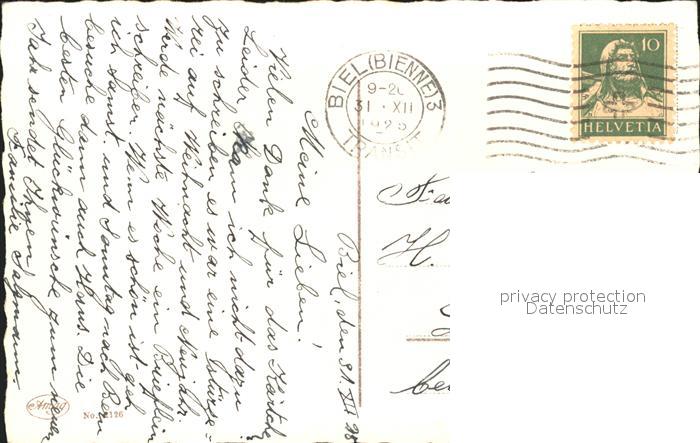 Biel, den 31. XII 28
Meine Lieben!
Vielen Dank für das Kärtche
Leider kann ich nicht dazu
zu schreiben es war eine Stürze-
rei auf Weihnacht und Neujahr.
Werde nächste Woche ein Brieflein
schreiben. Wenn es schön ist geh
ich Samst. und Sonntag nach Bern
besuche dann auch Hans. Die
besten Glückwünsche zum neuen
Jahr sendet Ihnen
Familie
BIEL (BIENNE) 3
9-20
31. XII
1928
TRANSIT
10
HELVETIA
H.
privacy protection
Datenschutz
No. 2126